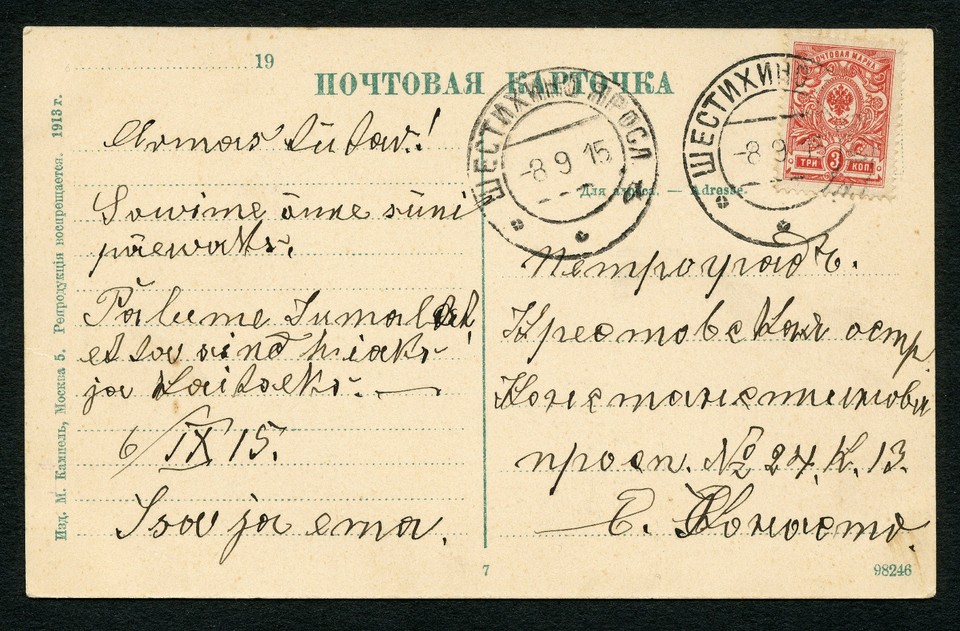 19
ПОЧТОВАЯ КАРТОЧКА
Изд. М. Кампель, Москва 5. Репродукцiя воспрещается. 1913 г.
Armas tütar!
Sowime õnne süni
päewaks.
Palume Jumalat,
et ta sind hoiaks
ja kaitseks. —
6/IX 15.
Isa ja ema.
7
ШЕСТИХИНО ЯРОСЛ
-8 9 15
а
ШЕСТИХИН
-8 9 15
ПОЧТОВАЯ МАРКА
3
ТРИ КОП.
Для адреса. — Adresse.
Петроградъ.
Крестовская остр.
Константинова
просп. № 24, К. 13.
98246